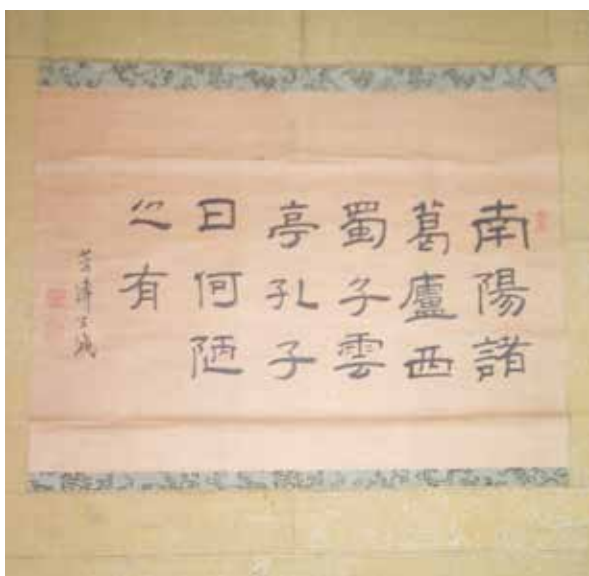 南陽諸
葛廬西
蜀子雲
亭孔子
曰何陋
之有